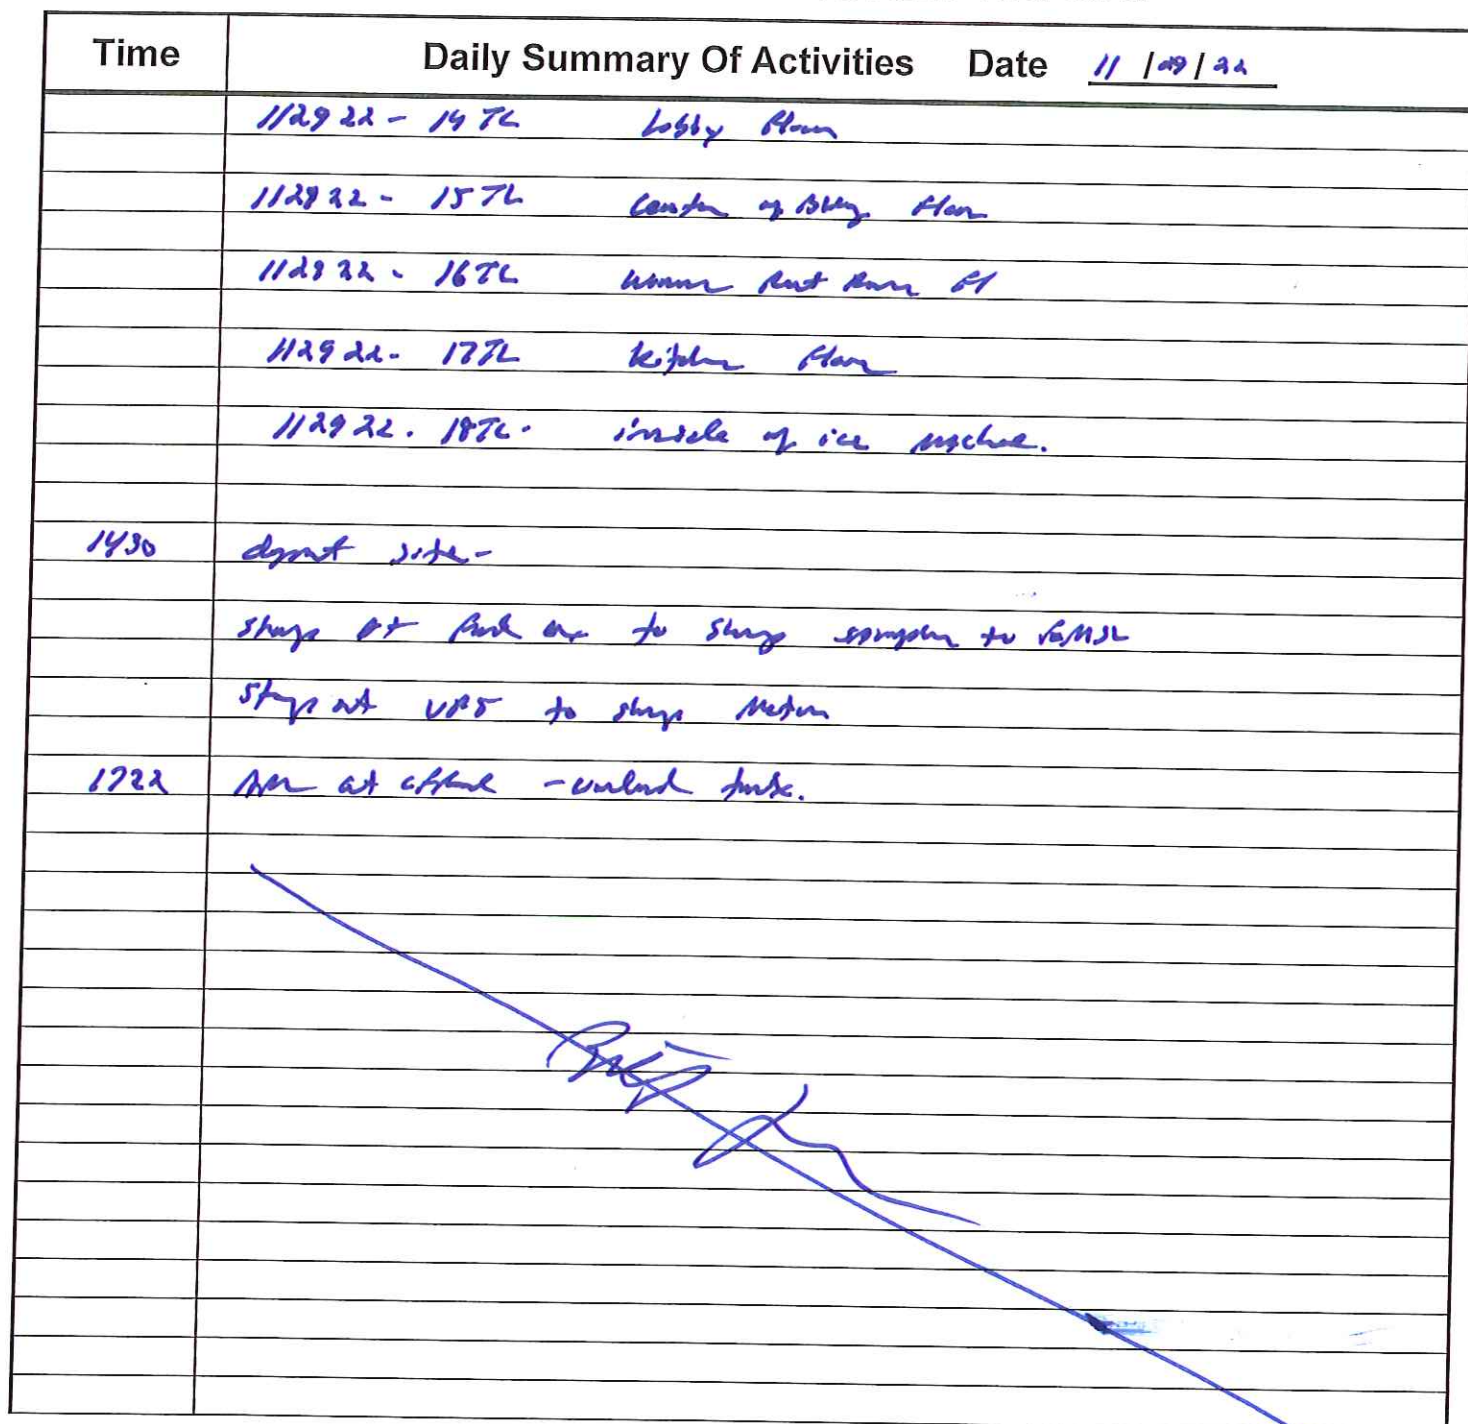 Time Daily Summary Of Activities Date 11/29/22
112922 - 14TL Lobby Floor
112922 - 15TL Center of Bldg Floor
112922 - 16TL women Rest Room Fl
112922 - 17TL kitchen Floor
112922 - 18TL - inside of ice machine.
1430 depart site -
stops at Fed Ex to ship samples to
stops at UPS to ship
1722 at office - unload truck.